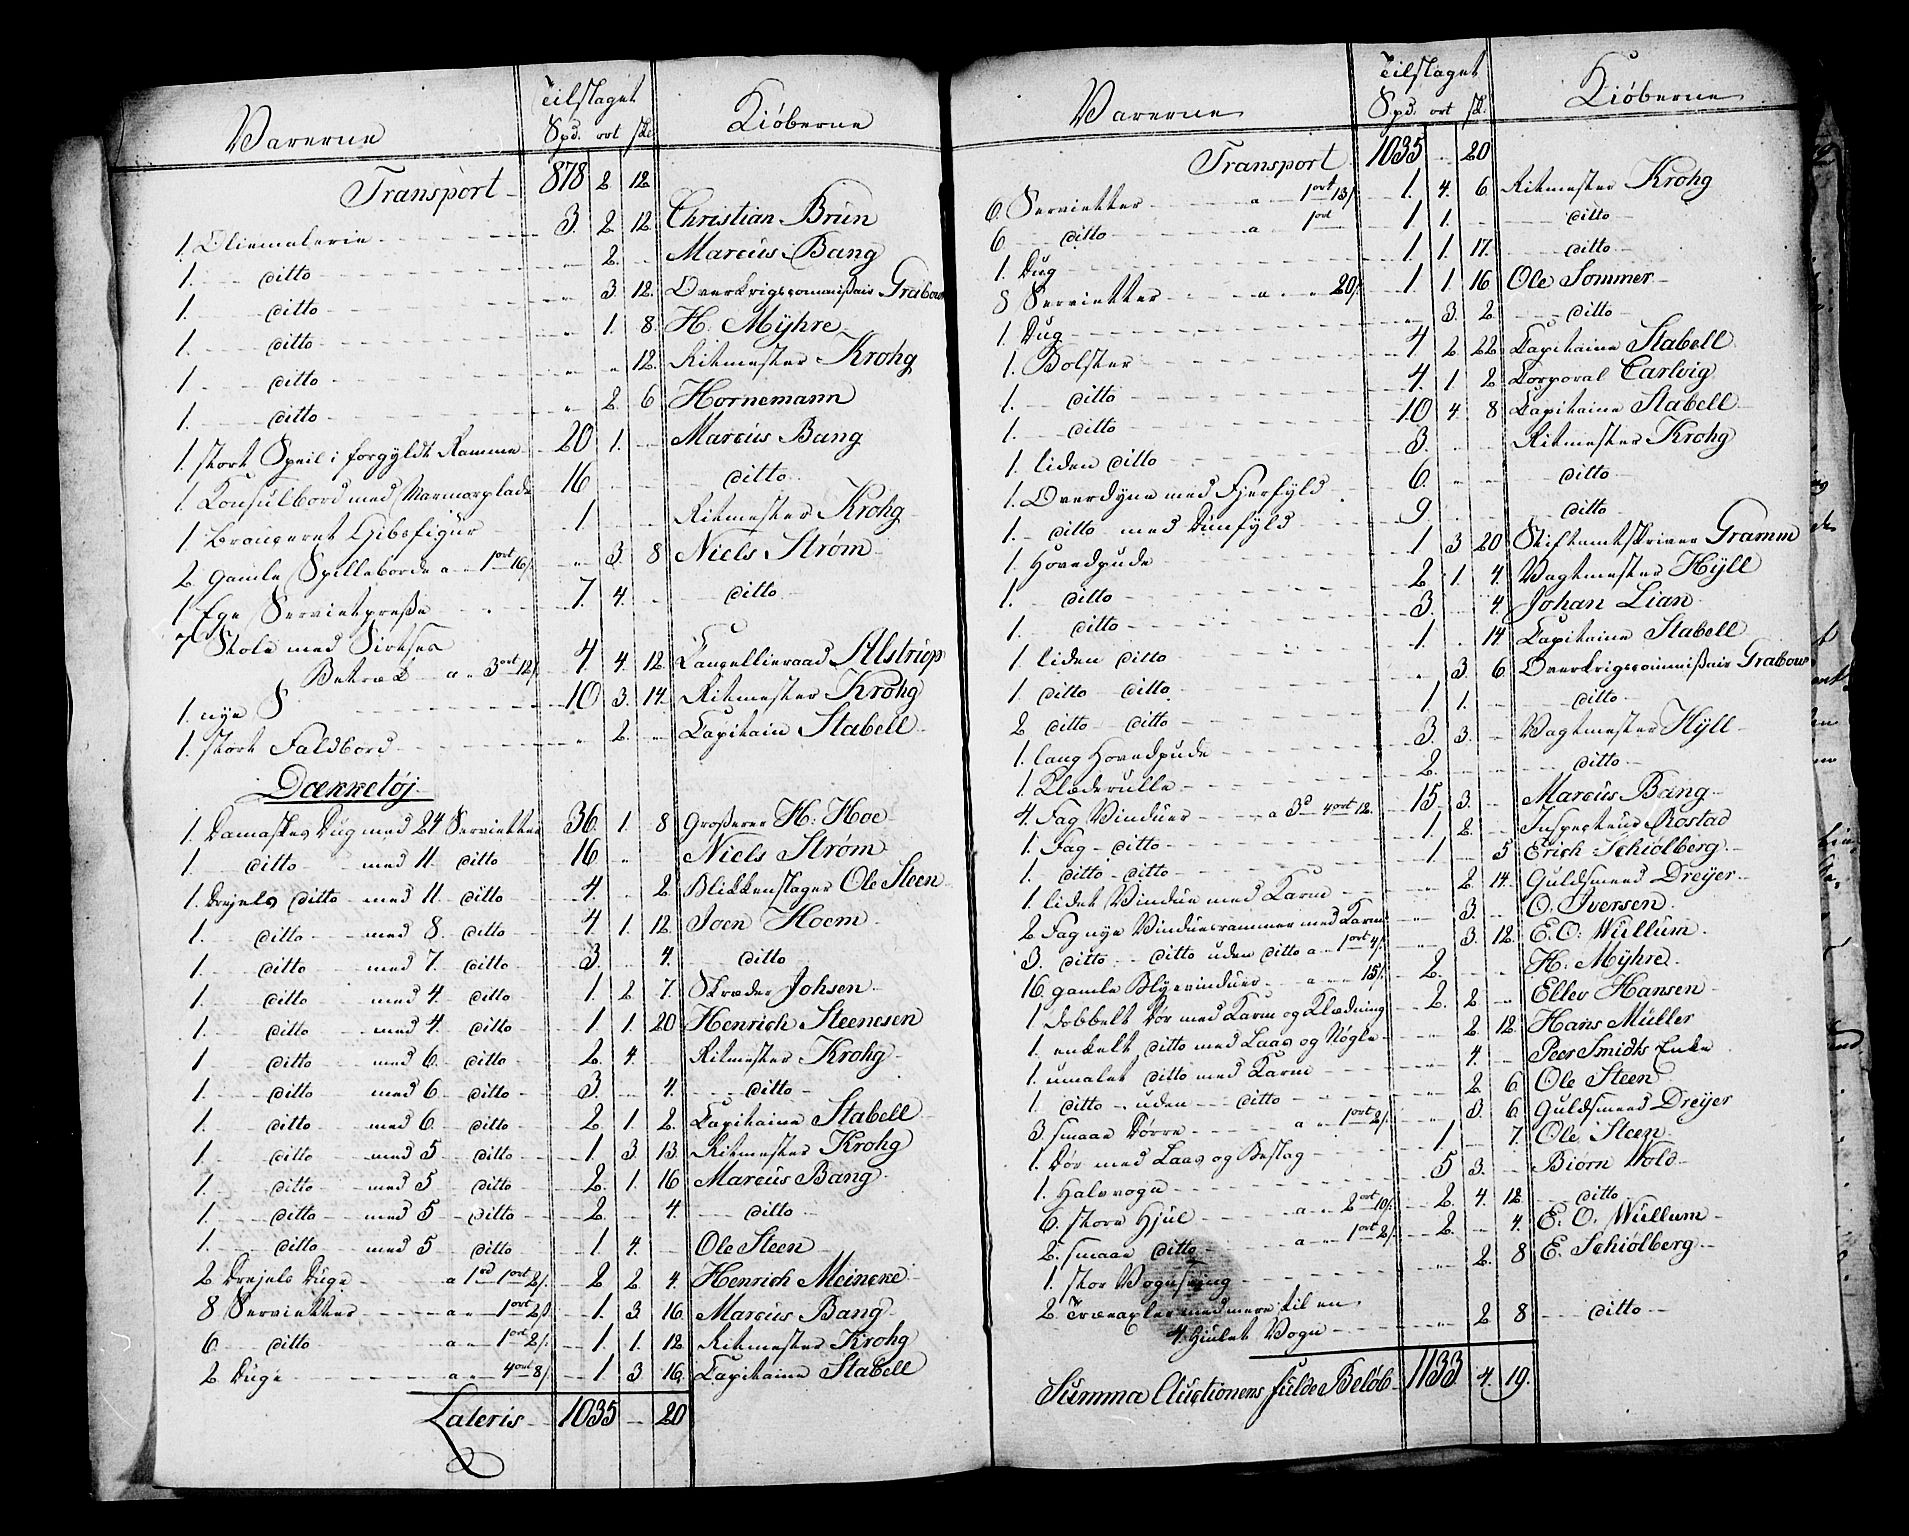 Varerne Tilslaget Kiøberne
Spd. ort sk.
Transport 878 2 12
1. Oliemalerie 3. 2. 12. Christian Brun
1. ditto " 2. Marcus Bang
1. ditto " 3. 12. Overkrigscommissair Grabow
1. ditto " 1. 8. H. Myhre
1. ditto " " 12. Ritmester Krohg
1. ditto " 2. 6 Hornemann
1. stort Speil i forgyldt Ramme 20 1. Marcus Bang
1. Konsulbord med Marmorplade 16 ditto
1. Brauneret Gibsfigur 1 Ritmester Krohg
2. gamle Spilleborde a 1 ort 16/. " 3. 8 Niels Strøm
1. Ege Servietpresse 7. 4. ditto
7 Stole med Sirtses
Betræk a 3 ort 12/. 4 4. 12. Cancellieraad Alstrup
1. nye 10 3. 14. Ritmester Krohg
1. stort Faldbord " 2. " Capitain Stabell
Dækketøj
1. Damaskes Dug med 24 Servietter 36. 1. 8 Grosserer H. Hoe
1. ditto med 11. ditto 16 " Niels Strøm
1. Drejels ditto med 11. ditto 4. 2. Blikkenslager Ole Steen
1. ditto med 8. ditto 4 1. 12. Joen Hoem
1. ditto med 7. ditto 3. 4. ditto
1. ditto med 4. ditto 1. 2 7. Skræder Johsen
1. ditto med 4. ditto 1 1. 20 Henrich Steenesen
1 ditto med 6. ditto 2. 4. Ritmester Krohg
1. ditto med 6 ditto 3. 4. ditto
1. ditto med 6. ditto 2 1. 2. Capitaine Stabell
1. ditto med 5 ditto 1 3 13. Ritmester Krohg
1. ditto med 5 ditto 2. 1. 16 Marcus Bang
1. ditto med 5 ditto 2. 4. ditto
1. ditto med 5 ditto 1. 4. Ole Steen
2 Drejels Duge a 1 rd 1 ort 2/. 2 2. 4. Henrich Meincke
8 Servietter a 1 ort 2/. 1. 3 16. Marcus Bang
6 ditto a 1 ort 2/. 1 1. 12 Ritmester Krohg
2 Duge a 4 ort 8/. 1 3. 16. Capitaine Stabell
Lateris 1035 20
Varerne Tilslaget Kiøberne
Spd. ort sk.
Transport 1035 20
6. Servietter a 1 ort 13/. 1. 4. 6 Ritmester Krohg
6 ditto a 1 ort 1 1. ditto
1. Dug 1 1. 17. ditto
8 Servietter a 20/. 1 1. 16 Ole Sommer
1. Dug " 3. 2 ditto
1. Bolster 4 2. 22 Capitaine Stabell
1. ditto 4. 1 2 Corporal Carlvig
1. ditto 10 4. 8 Capitaine Stabell
1. liden ditto 3. Ritmester Krohg
1. Overdyne med Fjerfyld 6. ditto
1. ditto med Dunfyld 9 ditto
1. Hovedpude 1 3 20 Stiftamtskriver Gramm
1. ditto 2 1. 4. Vagtmester Hyll
1. ditto 3. 4. Johan Lian
1. liden ditto 1 14 Capitaine Stabell
1. ditto ditto " 3. 6 Overkrigscommissair Grabow
2 ditto ditto 1 1. ditto
1. lang Hovedpude 3 3. Vagtmester Hyll
1. Klæderulle 2. ditto
4. Fag Vinduer a 3 d 4 ort 12. 15 3. Marcus Bang
1. Fag ditto 1. 2. Inspecteur Rostad
1. ditto ditto 1 5 Erich Schiølberg
1. lidet Vindue med Karm " 2. 14. Guldsmed Dreyer
2. Fag nye Vinduesrammer med Karm " 3. O. Iversen
3. ditto ditto uden ditto a 1 ort 4/. " 3. 12. E. O. Wullum
16. gamle Blyevinduer a 15/. 2. H. Myhre
1. dobbelt Dør med Karm og Klædning 2. 2. Ellev Hansen
1. enkelt ditto med Laas og Nøgle 2. 12. Hans Müller
1. umalet ditto med Karm " 4. Peer Smidts Enke
1. ditto uden ditto " 2. 6 Ole Steen
3. smaae Dørre a 1 ort 2/. " 3. 6. Guldsmed Dreyer
1. Dør med Laas og Beslag 1 7. Ole Steen
1. Halvvogn 5 3. Biørn Wold
6. store Hjul a 2 ort 10/. 2. 4. 12. ditto
2. smaae ditto a 1 ort 2/. 2 4. E. O. Wullum
1. stor Vogn " 2. 8 E. Schiølberg
2 Træeaxler med mere til en
4. Hiulet Vogn " 2 8 ditto
Summa Auctionens fulde Beløb 1133 4. 19.